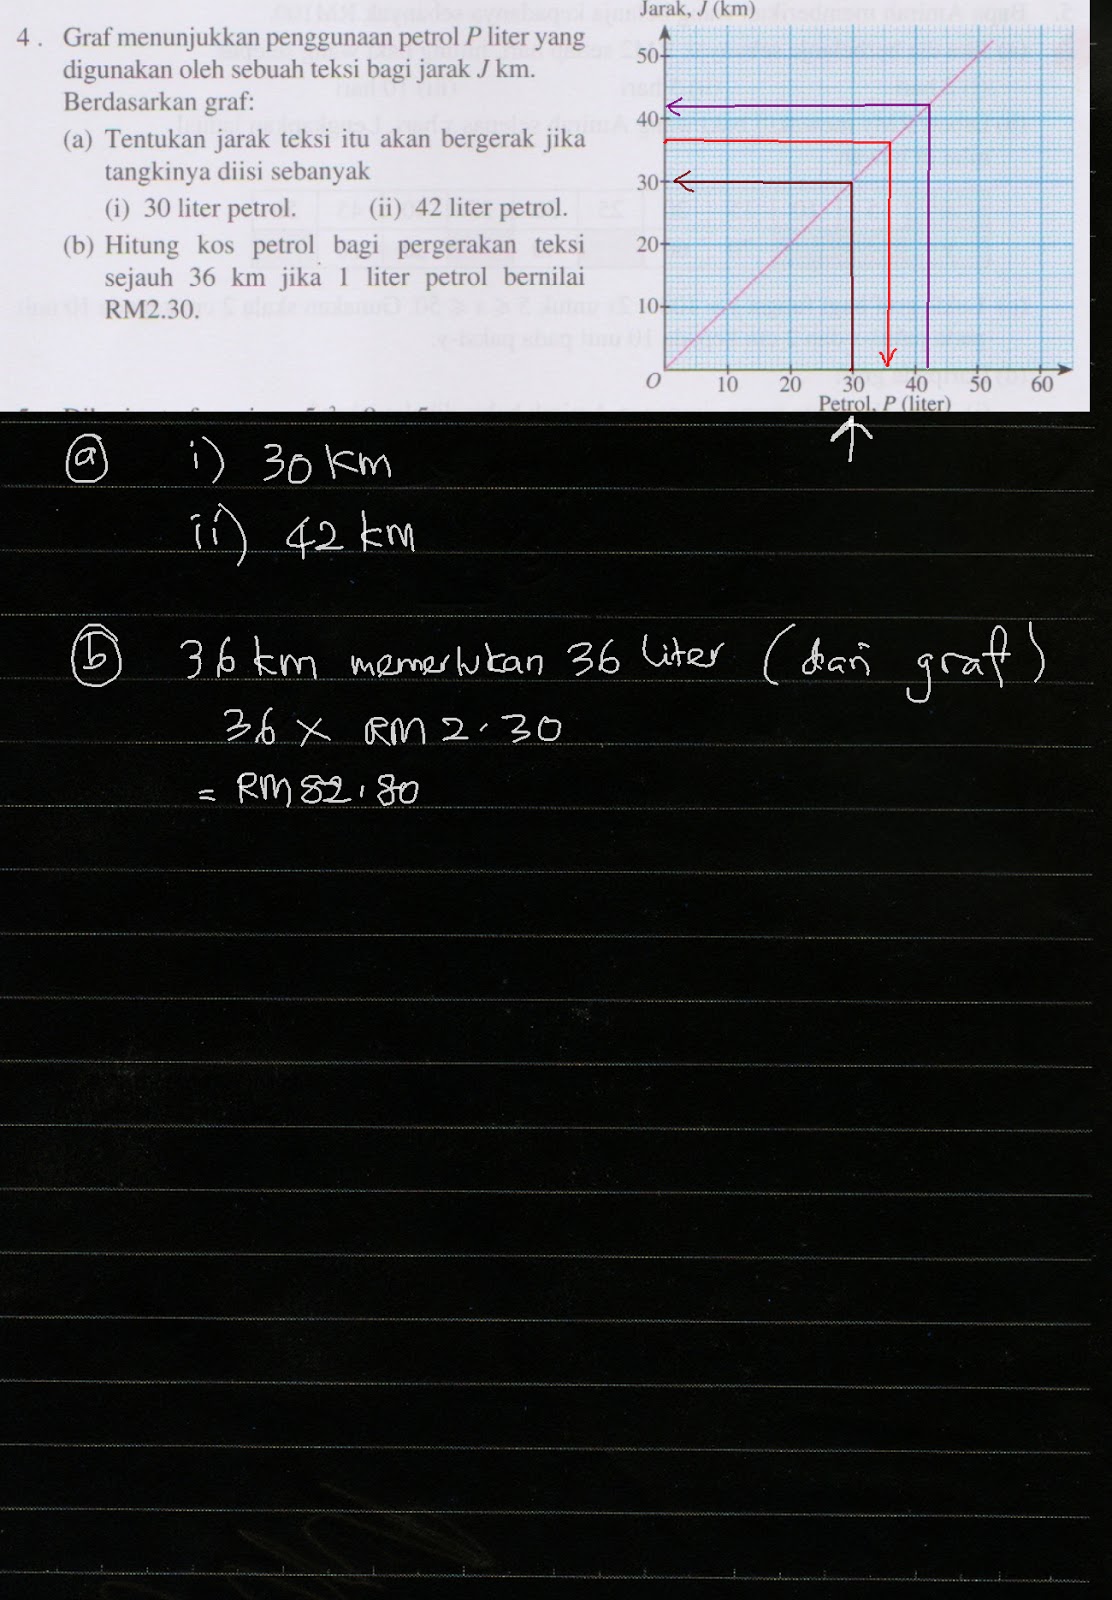 Jarak, J (km)
4 . Graf menunjukkan penggunaan petrol P liter yang
digunakan oleh sebuah teksi bagi jarak J km.
Berdasarkan graf:
(a) Tentukan jarak teksi itu akan bergerak jika
tangkinya diisi sebanyak
(i) 30 liter petrol. (ii) 42 liter petrol.
(b) Hitung kos petrol bagi pergerakan teksi
sejauh 36 km jika 1 liter petrol bernilai
RM2.30.
50
40
30
20
10
O 10 20 30 40 50 60
Petrol, P (liter)
a i) 30 km
ii) 42 km
b 36 km memerlukan 36 liter (dari graf)
36 × RM 2.30
= RM 82.80